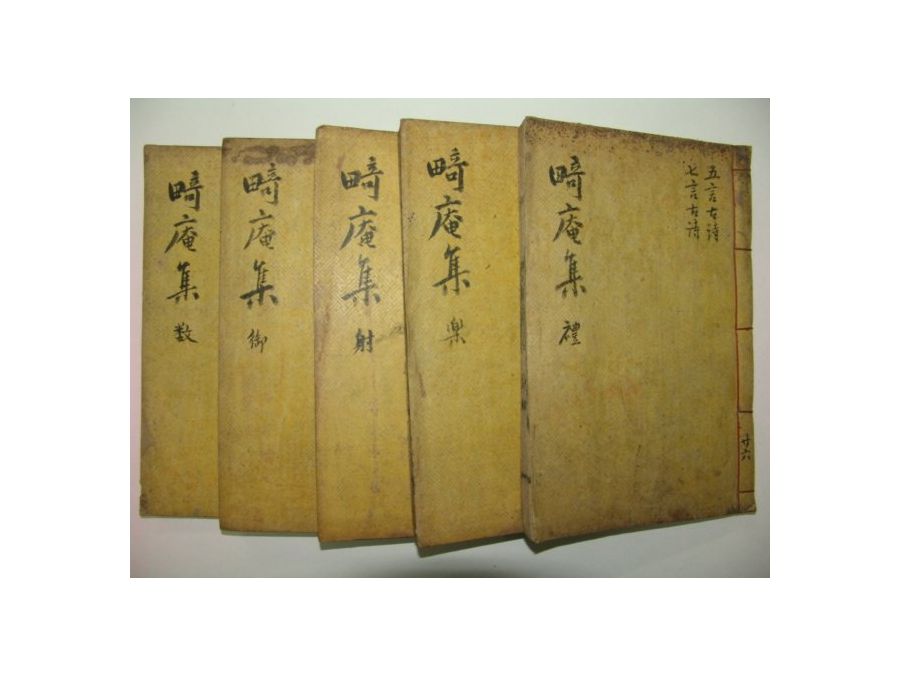 五言古詩
七言古詩
畸庵集
禮
廿六
畸庵集
樂
畸庵集
射
畸庵集
御
畸庵集
数